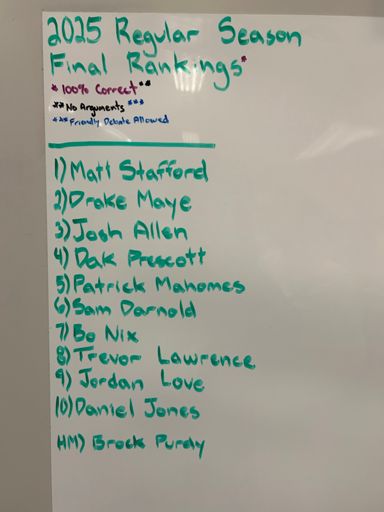 2025 Regular Season
Final Rankings*
* 100% Correct**
** No Arguments ***
*** Friendly Debate Allowed
1) Matt Stafford
2) Drake Maye
3) Josh Allen
4) Dak Prescott
5) Patrick Mahomes
6) Sam Darnold
7) Bo Nix
8) Trevor Lawrence
9) Jordan Love
10) Daniel Jones
HM) Brock Purdy